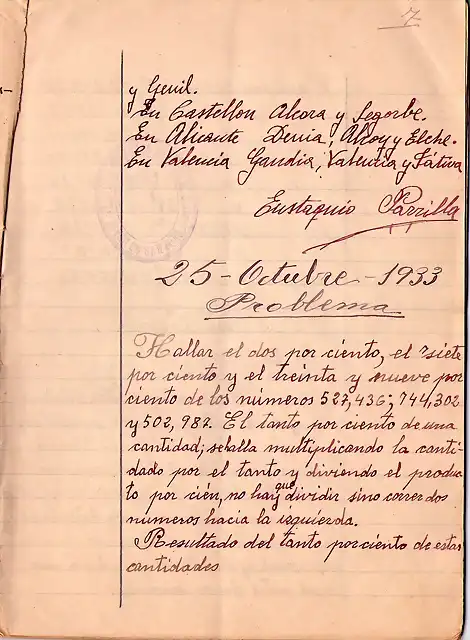 7
y Genil.
En Castellon Alcora y Segorbe.
En Alicante Denia, Alcoy y Elche.
En Valencia Gandia, Valencia y Játiva
Eustaquio Parrilla
25-Octubre-1933
Problema
Hallar el dos por ciento, el siete
por ciento y el treinta y nueve por
ciento de los números 527,436; 744,302
y 502,987. El tanto por ciento de una
cantidad; se alla multiplicando la canti-
dado por el tanto y diviendo el produc-
to por cién, no hay que dividir sino correr dos
numeros hacia la izquierda.
Resultado del tanto por ciento de estas
cantidades